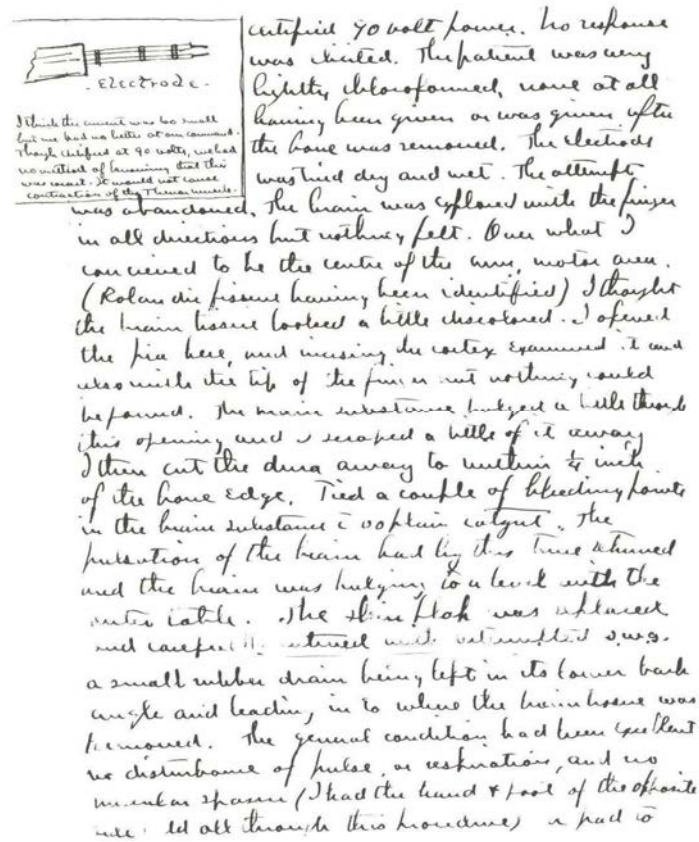 - Electrode -
I think the current was too small
but we had no better at our command.
Though certified at 90 volts, we had
no method of knowing that this
was exact. It would not cause
contraction of the Thenar muscle.
certified 90 volt power. No response
was elicited. The patient was very
lightly chloroformed, none at all
having been given or was given after
the bone was removed. The electrode
was tried dry and wet. The attempt
was abandoned. The brain was explored with the finger
in all directions but nothing felt. Over what I
conceived to be the centre of the arm, motor area.
(Rolandic fissure having been identified) I thought
the brain tissue looked a little discolored. I opened
the pia here, and incising the cortex examined it and
also with the tip of the finger but nothing could
be found. The brain substance bulged a little through
this opening and I scraped a little of it away
I then cut the dura away to within ¼ inch
of the bone edge. Tied a couple of bleeding points
in the brain substance c̄ 00 plain catgut. The
pulsation of the brain had by this time returned
and the brain was bulging to a level with the
outer table. The skin flap was replaced
and carefully sutured with interrupted s.w.g.
a small rubber drain being left in its lower back
angle and leading in to where the brain tissue was
removed. The general condition had been excellent
no disturbance of pulse, or respiration, and no
muscular spasm (I had the hand & foot of the opposite
side held all through this procedure) a pad to